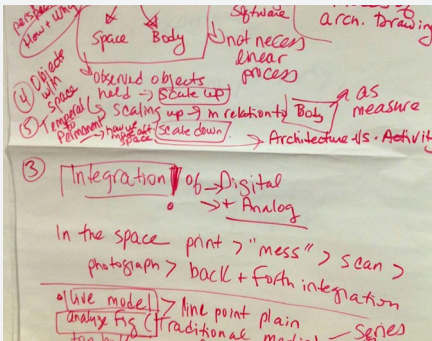 perspec
How + Why
Space Body
Software
arch. Drawing
not necess
linear
process
④ Objects
w/in
space
→ Observed objects
held → Scale up
⑤ Temporal
to
Permanent
→ Scaling up → in relation to Body → as
measure
space
Scale down → Architecture V/s. Activity
③ Integration! of → Digital
→ + Analog
In the space print > "mess" > scan >
photograph > back + forth integration
• live model > line point plain
analyze fig (traditional
Series